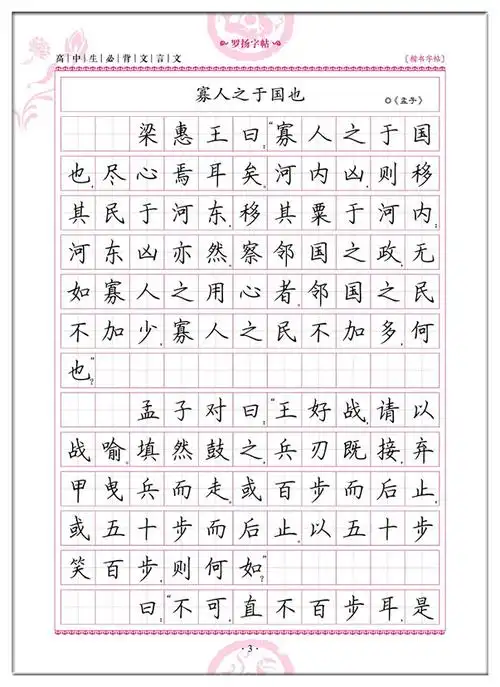 罗扬字帖
高中生必背文言文
〔楷书字帖〕
寡人之于国也
○《孟子》
梁惠王曰:“寡人之于国
也,尽心焉耳矣。河内凶,则移
其民于河东,移其粟于河内;
河东凶亦然。察邻国之政,无
如寡人之用心者。邻国之民
不加少,寡人之民不加多,何
也?”
孟子对曰:“王好战,请以
战喻。填然鼓之,兵刃既接,弃
甲曳兵而走。或百步而后止,
或五十步而后止。以五十步
笑百步,则何如?”
曰:“不可,直不百步耳,是
·3·